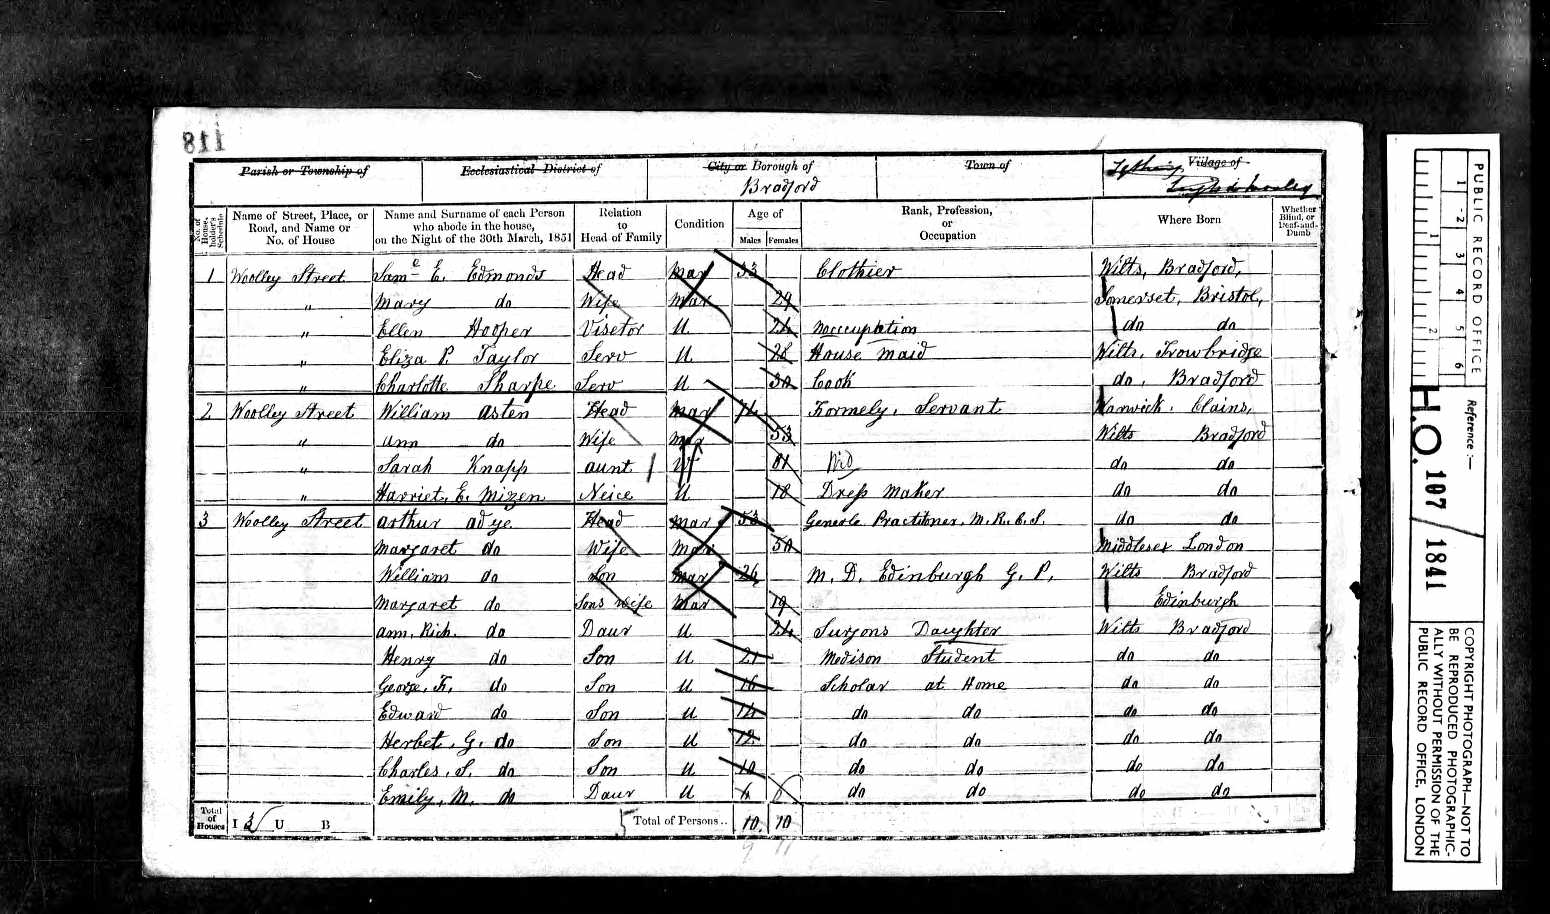 118
Parish or Township of Ecclesiastical District of City or Borough of Town of Village of
Bradford Tything
No. of House-holder's Schedule Name of Street, Place, or Road, and Name or No. of House Name and Surname of each Person who abode in the house, on the Night of the 30th March, 1851 Relation to Head of Family Condition Age of Males Females Rank, Profession, or Occupation Where Born Whether Blind, or Deaf-and-Dumb
1 Woolley Street Saml E. Edmonds Head Mar 33 Clothier Wilts, Bradford,
" Mary do Wife Mar 29 Somerset, Bristol,
" Ellen Hooper Visetor U 24 Noccupation do do
" Eliza P. Taylor Serv U 28 House Maid Wilts, Trowbridge
" Charlotte Sharpe Serv U 30 Cook do, Bradford
2 Woolley Street William Asten Head Mar 74 Formely, Servant Warwick, Clains,
" Ann do Wife Mar 53 Wilts Bradford
" Sarah Knapp Aunt W 81 Wid do do
" Harriet, E. Mizen Neice U 18 Dress Maker do do
3 Woolley Street Arthur Adye Head Mar 53 Generle Practitoner, M.R.C.S. do do
Margaret do Wife Mar 50 Middlesex London
William do Son Mar 26 M.D. Edinburgh G.P. Wilts Bradford
Margaret do Sons Wife Mar 19 Edinburgh
Ann, Rich. do Daur U 24 Surjons Daughter Wilts Bradford
Henry do Son U 21 Medison Student do do
George, F. do Son U 16 Scholar at Home do do
Edward do Son U 14 do do do do
Herbet, G. do Son U 12 do do do do
Charles, S. do Son U 10 do do do do
Emily, M. do Daur U 6 do do do do
Total of Houses I 3 U B Total of Persons.. 10 10
9 11
PUBLIC RECORD OFFICE
1 2 3 4 5 6
1 2
Reference:-
H.O. 107/1841
COPYRIGHT PHOTOGRAPH—NOT TO BE REPRODUCED PHOTOGRAPHIC-ALLY WITHOUT PERMISSION OF THE PUBLIC RECORD OFFICE, LONDON